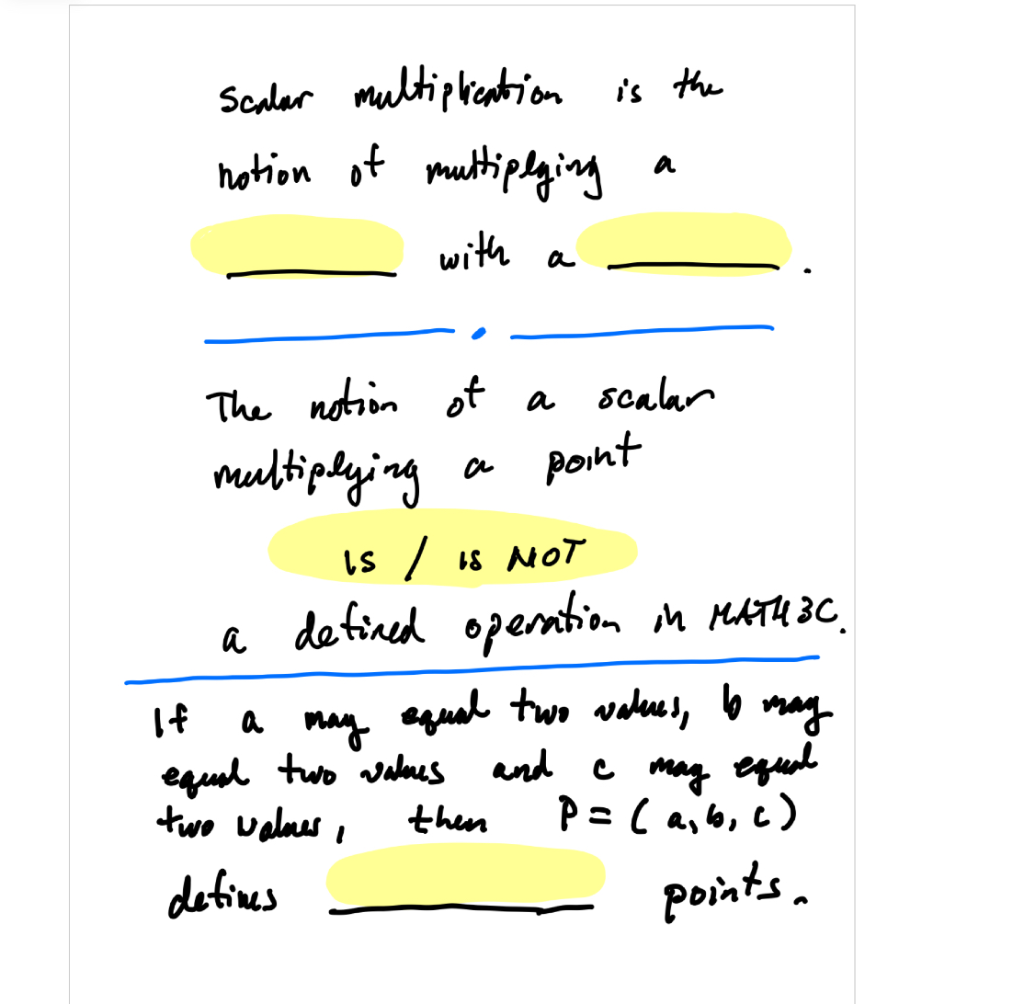 Scalar multiplication is the
notion of multiplying a
______ with a ______.
The notion of a scalar
multiplying a point
is / is NOT
a defined operation in MATH 3C.
If a may equal two values, b may
equal two values and c may equal
two values, then P = (a, b, c)
defines ______ points.